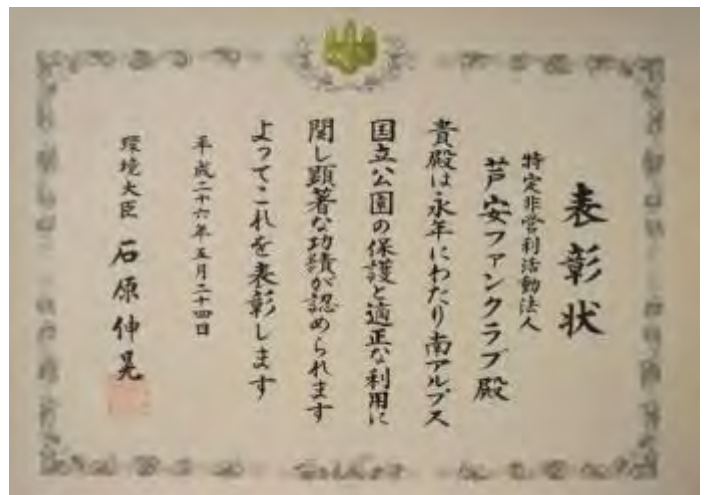 表彰状
特定非営利活動法人
芦安ファンクラブ殿
貴殿は永年にわたり南アルプス
国立公園の保護と適正な利用に
関し顕著な功績が認められます
よってこれを表彰します
平成二十六年五月二十四日
環境大臣 石原伸晃